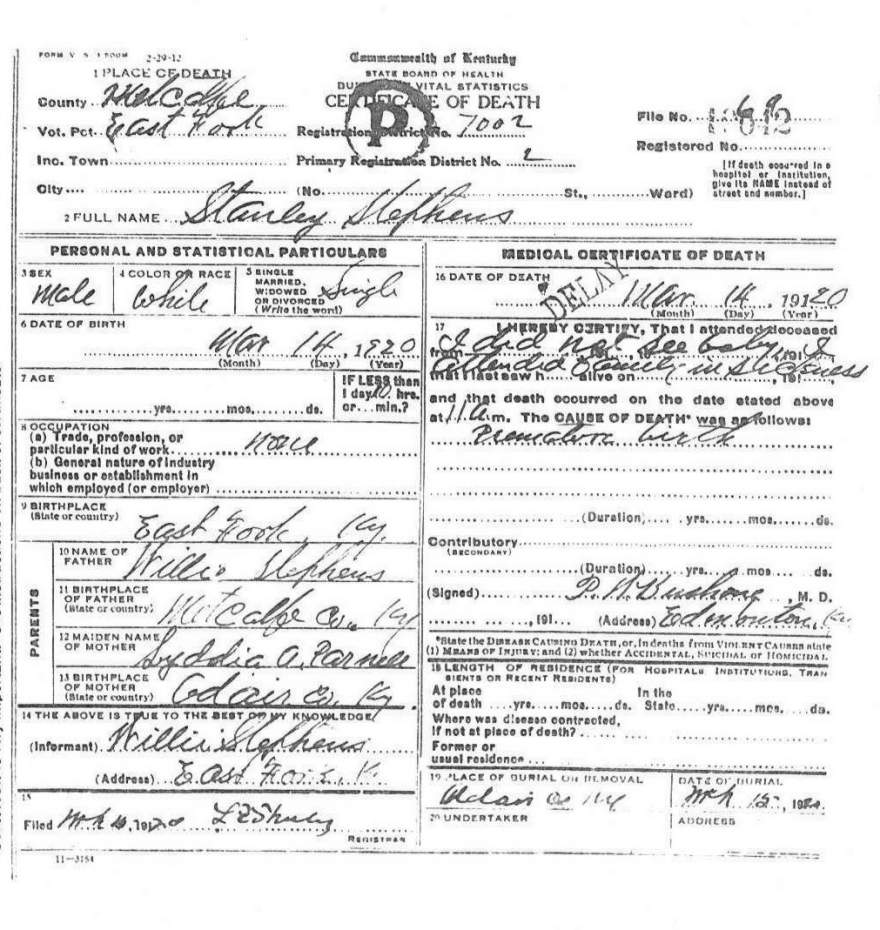 FORM V. S. 2-29-12
Commonwealth of Kentucky
STATE BOARD OF HEALTH
VITAL STATISTICS
CERTIFICATE OF DEATH
1 PLACE OF DEATH
County Metcalfe
Vot. Pct. East Fork
Registration District No. 7002
File No.
Registered No.
Inc. Town
Primary Registration District No. 2
[If death occurred in a hospital or institution, give its NAME instead of street and number.]
City (No. St., Ward)
2 FULL NAME Stanley Stephens
PERSONAL AND STATISTICAL PARTICULARS
3 SEX
Male
4 COLOR OR RACE
White
5 SINGLE
MARRIED,
WIDOWED
OR DIVORCED
(Write the word)
Single
6 DATE OF BIRTH
Mar 14, 1920
(Month) (Day) (Year)
7 AGE
yrs. mos. ds.
IF LESS than
1 day 10 hrs.
or min.?
8 OCCUPATION
(a) Trade, profession, or
particular kind of work none
(b) General nature of industry
business or establishment in
which employed (or employer)
9 BIRTHPLACE
(State or country)
East Fork, Ky.
PARENTS
10 NAME OF
FATHER
Willie Stephens
11 BIRTHPLACE
OF FATHER
(State or country)
Metcalfe Co., Ky
12 MAIDEN NAME
OF MOTHER
Lyddia A. Parnell
13 BIRTHPLACE
OF MOTHER
(State or country)
Adair Co, Ky.
14 THE ABOVE IS TRUE TO THE BEST OF MY KNOWLEDGE
(Informant) Willie Stephens
(Address) East Fork, K.
15
Filed 1920
REGISTRAR
11-3184
MEDICAL CERTIFICATE OF DEATH
16 DATE OF DEATH
DELAY
Mar 14, 1920
(Month) (Day) (Year)
17 I HEREBY CERTIFY, That I attended deceased
I did not see baby, I
from 191 , to 191
attended family in sickness
that I last saw h alive on , 191
and that death occurred on the date stated above
at 11 a.m. The CAUSE OF DEATH* was as follows:
Premature birth
(Duration) yrs. mos. ds.
Contributory
(SECONDARY)
(Duration) yrs. mos. ds.
(Signed) P. W. Bushong, M. D.
, 191 (Address) Edmonton, Ky
*State the DISEASE CAUSING DEATH, or, in deaths from VIOLENT CAUSES state
(1) MEANS OF INJURY; and (2) whether ACCIDENTAL, SUICIDAL or HOMICIDAL.
18 LENGTH OF RESIDENCE (FOR HOSPITALS INSTITUTIONS, TRAN
SIENTS OR RECENT RESIDENTS)
At place In the
of death yrs. mos. ds. State yrs. mos. ds.
Where was disease contracted,
if not at place of death?
Former or
usual residence
19 PLACE OF BURIAL OR REMOVAL
Adair Co Ky
DATE OF BURIAL
Mch 15, 1920
20 UNDERTAKER
ADDRESS